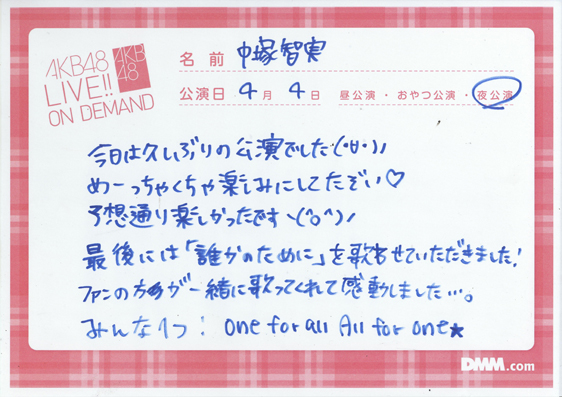 AKB48
LIVE!!
ON DEMAND
AKB
48
名前 中塚智実
公演日 4月 4日 昼公演・おやつ公演・夜公演
今日は久しぶりの公演でした(・∀・)ノ
めーっちゃくちゃ楽しみにしてたぞい♡
予想通り楽しかったですヽ(^o^)ノ
最後には「誰かのために」を歌わせていただきました!
ファンの方々が一緒に歌ってくれて感動しました…。
みんな1つ! one for all All for one★
DMM.com